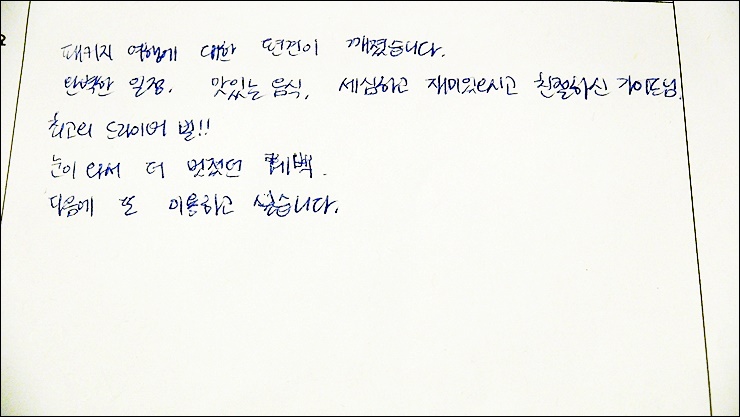 요
패키지 여행에 대한 편견이 깨졌습니다.
완벽한 일정. 맛있는 음식, 세심하고 재미있으시고 친절하신 가이드님.
최고의 드라이버 빌!!
눈이 와서 더 멋졌던 퀘벡.
다음에 또 이용하고 싶습니다.